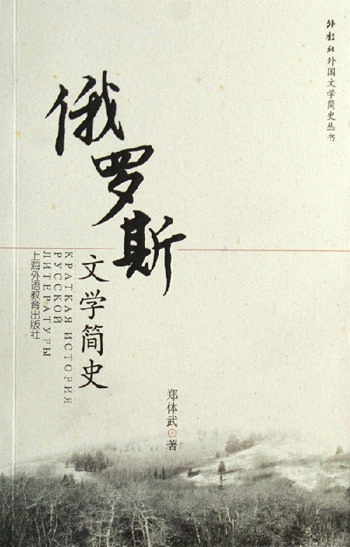 外教社外国文学简史丛书
俄罗斯
文学简史
КРАТКАЯ ИСТОРИЯ
РУССКОЙ
ЛИТЕРАТУРЫ
上海外语教育出版社
郑体武 著